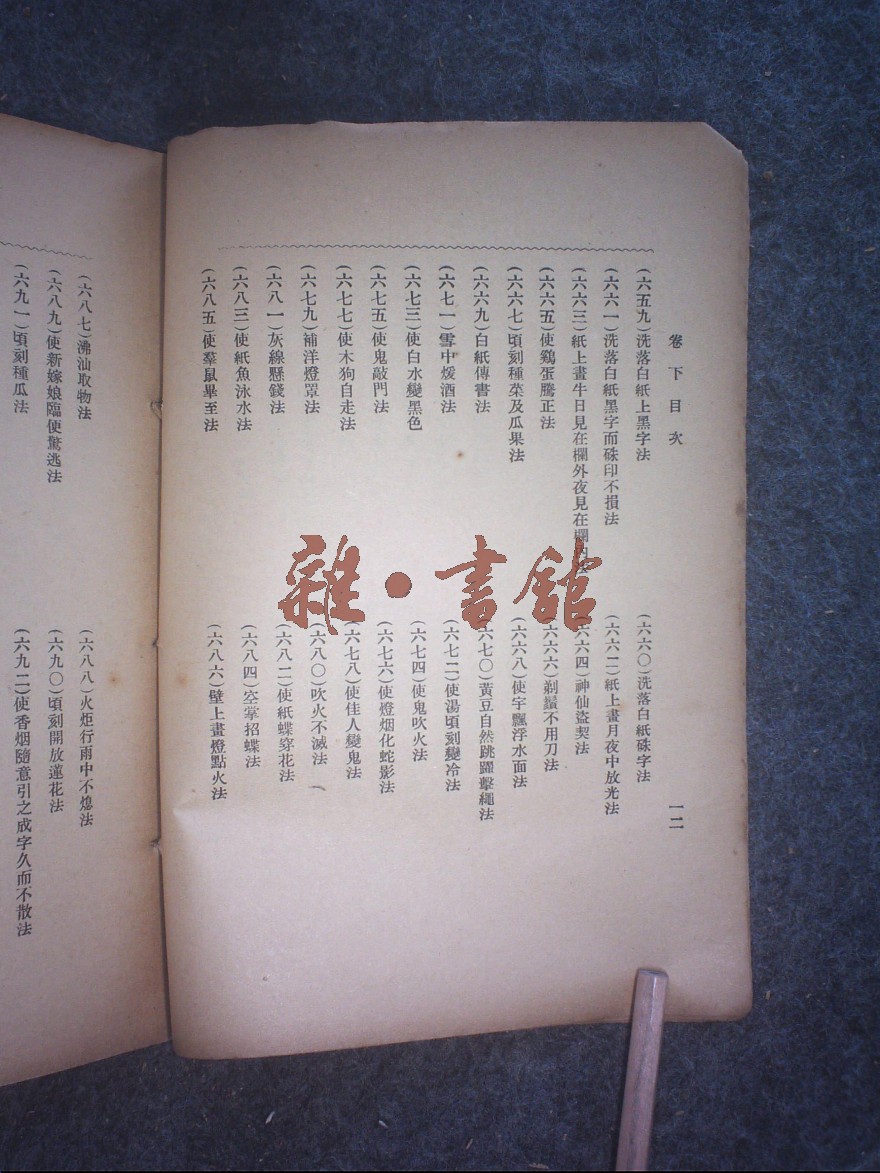 卷下目次
一二
(六五九)洗落白紙上黑字法
(六六〇)洗落白紙硃字法
(六六一)洗落白紙黑字而硃印不損法
(六六二)紙上畫月夜中放光法
(六六三)紙上畫牛日見在欄外夜見在欄內法
(六六四)神仙盜契法
(六六五)使鷄蛋騰正法
(六六六)剃鬚不用刀法
(六六七)頃刻種菜及瓜果法
(六六八)使字飄浮水面法
(六六九)白紙傳書法
(六七〇)黃豆自然跳躍擊繩法
(六七一)雪中煖酒法
(六七二)使湯頃刻變冷法
(六七三)使白水變黑色
(六七四)使鬼吹火法
(六七五)使鬼敲門法
(六七六)使燈烟化蛇影法
(六七七)使木狗自走法
(六七八)使佳人變鬼法
(六七九)補洋燈罩法
(六八〇)吹火不滅法
(六八一)灰線懸錢法
(六八二)使紙蝶穿花法
(六八三)使紙魚泳水法
(六八四)空掌招蝶法
(六八五)使羣鼠畢至法
(六八六)壁上畫燈點火法
(六八七)沸油取物法
(六八八)火炬行雨中不熄法
(六八九)使新嫁娘臨便驚逃法
(六九〇)頃刻開放蓮花法
(六九一)頃刻種瓜法
(六九二)使香烟隨意引之成字久而不散法
雜·書館